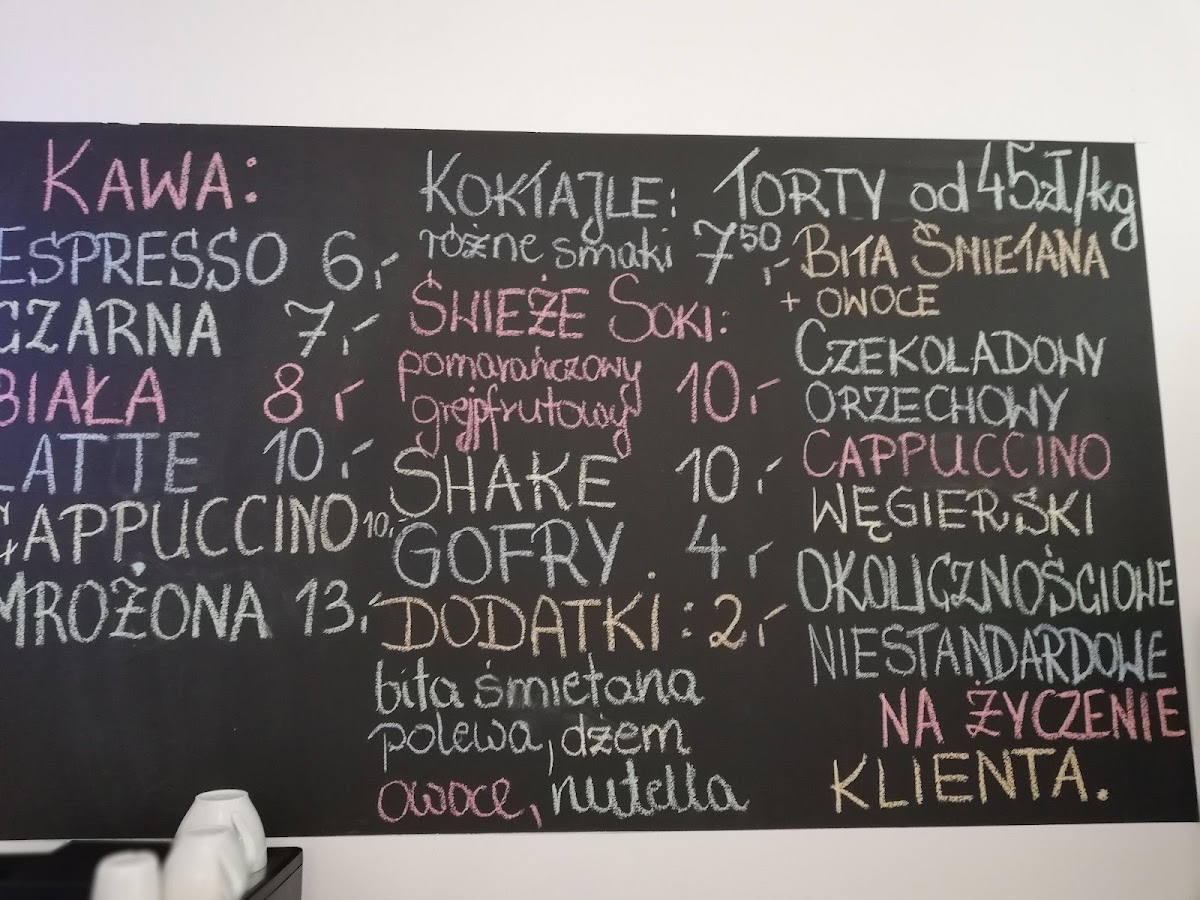 KAWA:
ESPRESSO 6,-
CZARNA 7,-
BIAŁA 8,-
LATTE 10,-
CAPPUCCINO 10,-
MROŻONA 13,-
KOKTAJLE:
różne smaki 7 50,-
ŚWIEŻE SOKI:
pomarańczowy
grejpfrutowy 10,-
SHAKE 10,-
GOFRY. 4,-
DODATKI: 2,-
bita śmietana
polewa, dżem
owoce, nutella
TORTY od 45zł/kg
BITA ŚMIETANA
+ OWOCE
CZEKOLADOWY
ORZECHOWY
CAPPUCCINO
WĘGIERSKI
OKOLICZNOŚCIOWE
NIESTANDARDOWE
NA ŻYCZENIE
KLIENTA.